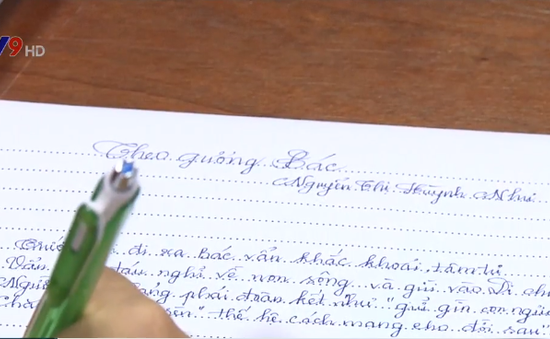 V9 HD
Theo gương Bác
Nguyễn Thị Huỳnh Như
đi xa Bác vẫn khắc khoải tâm tư
Vẫn đau nghĩ về non sông và gửi vào Di
Đảng phải đoàn kết như "giữ gìn con ngươi
thế hệ cách mạng cho đời sau"